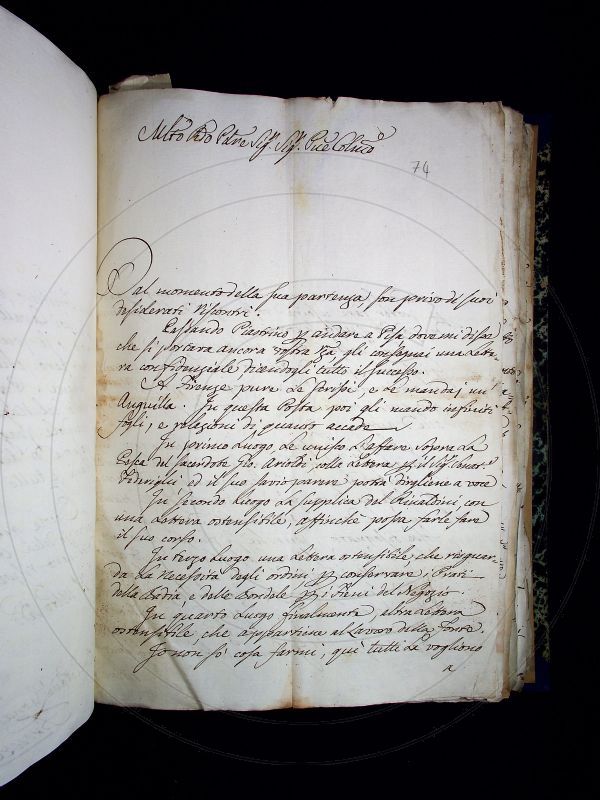 Molto Rdo Pdre Sig. Sig. Pne Colmo
74
Dal momento della sua partenza, son privo di suoi
desiderati Riscontri.
Passando Piastrino p andare a Pisa dove mi disse
che si portava ancora vostra Rza, gli consegnai una Lette
ra confidenziale dicendogli tutto il successo.
A Firenze pure Le scrissi, e Le mandai un'
Anguilla. In questa Posta poi gli mando infiniti
fogli, e relazioni di quanto accade.
In primo Luogo Le unisco L'affare sopra La
Pesca del Sacerdote Gio. colla Lettera p il Sig.
Federighi, ed il suo savio parere potrà dirgliene a voce
In secondo Luogo La supplica del Rinaldini con
una Lettera ostensibile, affinchè possa farle fare
il suo corso.
In terzo Luogo una Lettera ostensibile, che risguar-
da La necessità degli ordini p conservare i Prati
della Badia e delle Bordele p i Fieni del Negozio.
In quarto Luogo finalmente, altra Lettera
ostensibile, che appartiene al Lavoro della Fonte.
Io non sò cosa farmi, quì tutti La vogliono
a